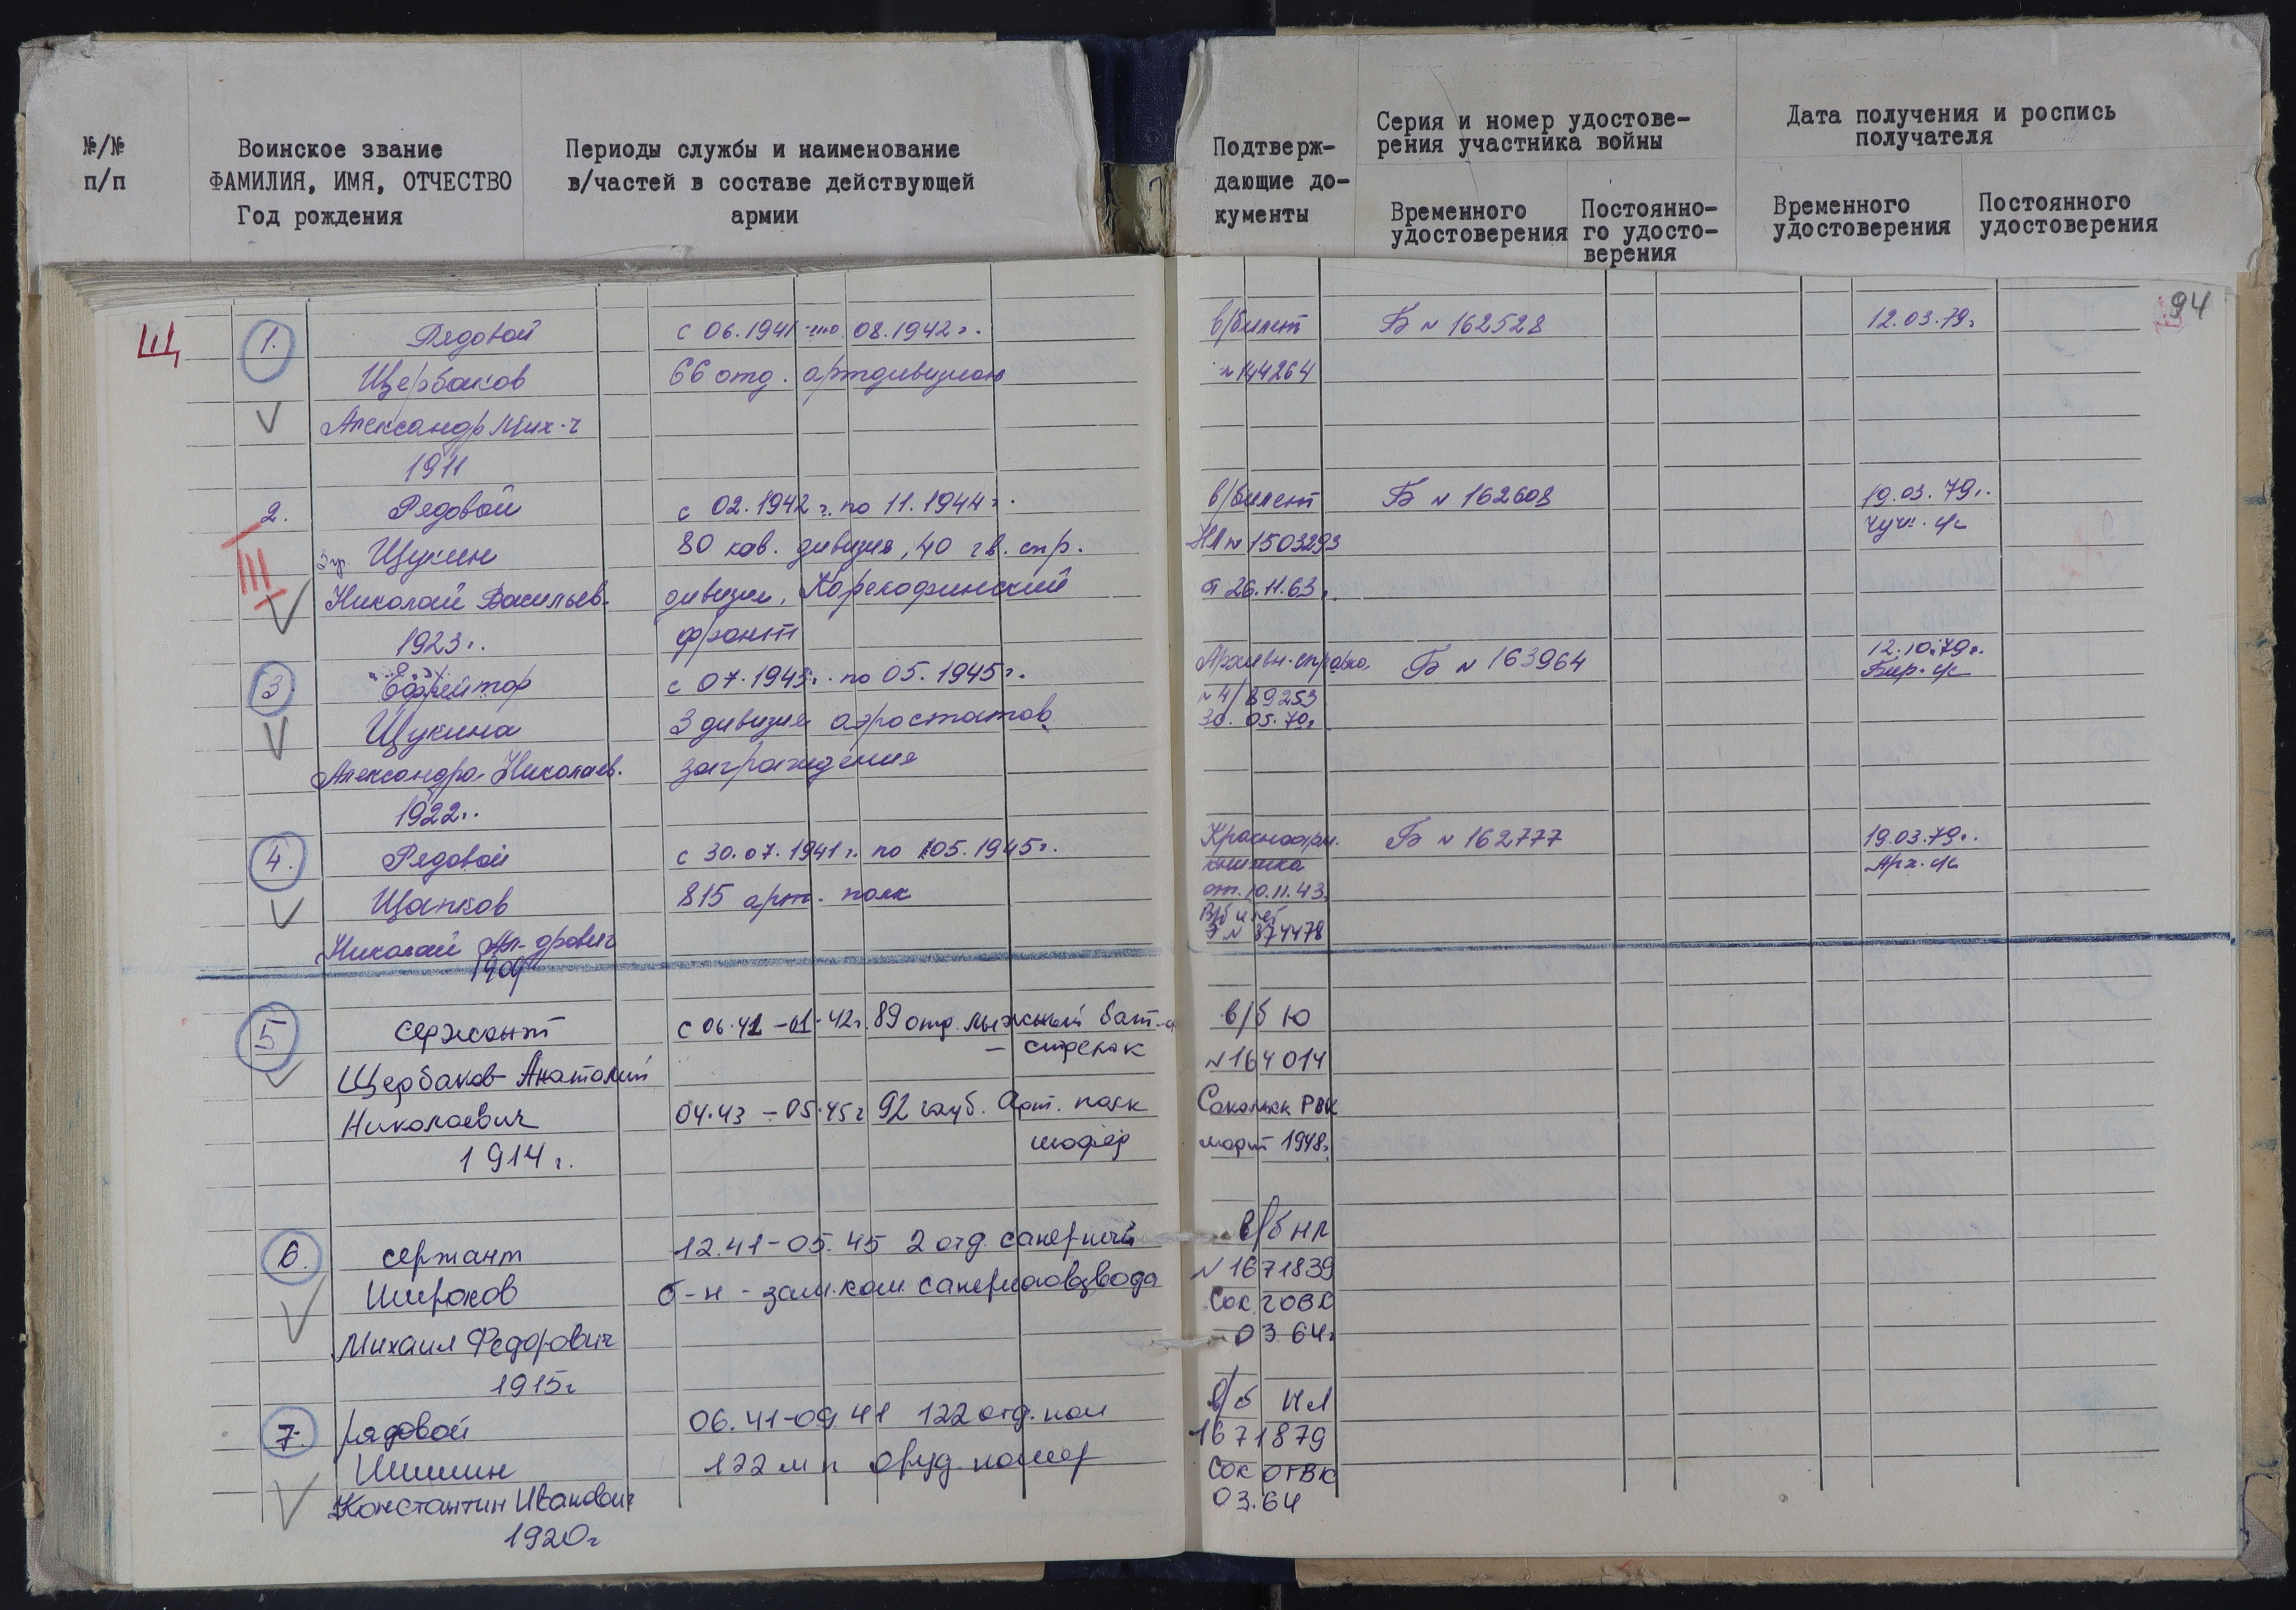 №/№
п/п
Воинское звание
ФАМИЛИЯ, ИМЯ, ОТЧЕСТВО
Год рождения
Периоды службы и наименование
в/частей в составе действующей
армии
Подтверж-
дающие до-
кументы
Серия и номер удостове-
рения участника войны
Временного
удостоверения
Постоянно-
го удосто-
верения
Дата получения и роспись
получателя
Временного
удостоверения
Постоянного
удостоверения
94
Щ
1. Рядовой с 06.1941 по 08.1942г. в/билет Б № 162528 12.03.79г
Щербаков 66 отд. артдивизион №144264
Александр Мих-ч
1911
2. Рядовой с 02.1942 г. по 11.1944г. в/билет Б № 162608 19.03.79г.
III Щукин 80 кав. дивизия, 40 гв. стр. НЛ № 1503293
Николай Васильев. дивизии, Карелофинский от 26.11.63г.
1923г. фронт
3 Ефрейтор с 07.1943г. по 05.1945г. Архивн. справка Б № 163964 12.10.79г.
Щукина 3 дивизия аэростатов №4/89253
30.05.70г
Александра Николаев. заграждения
1922г.
4. Рядовой с 30.07.1941г. по 05.1945г. Красноарм. Б № 162777 19.03.79г.
книжка
Щапков 815 арт. полк от 10.11.43
В/билет
Николай Ал-дрович № 374478
1909
5 сержант с 06.41-01.42г. 89 отд. лыжный бат-н в/б Ю
- стрелок
Щербаков Анатолий №164014
Николаевич 04.43-05.45г 92 гауб. Арт. полк Сокольск РВК
1914г. шофер март 1948г.
6. сержант 12.41-05.45 2 отд. саперный в/б НЛ
№1671839
Широков б-н - зам.ком. саперного взвода Сок ГОВК
Михаил Федорович 03.64г
1915г
7. рядовой 06.41-09.41 122 отд. в/б НЛ
1671879
Шишин 122 м п оруд. номер Сок ОГВК
Константин Иванович 03.64
1920г